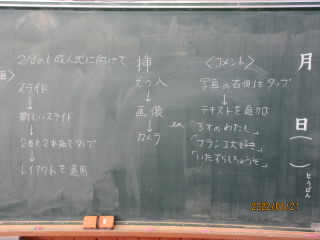 2分の1成人式に向けて
スライド
↓
新しいスライド
↓
2番
↓
レイアウトを適用
挿
そう入
↓
画像
↓
カメラ
〈コメント〉
写真の右側をタップ
↓
テキストを追加
「3才のわたし」
「ブランコ大好き」
「いたずらしちゃうぞ」
月
日
( )
とうばん
2022/01/21